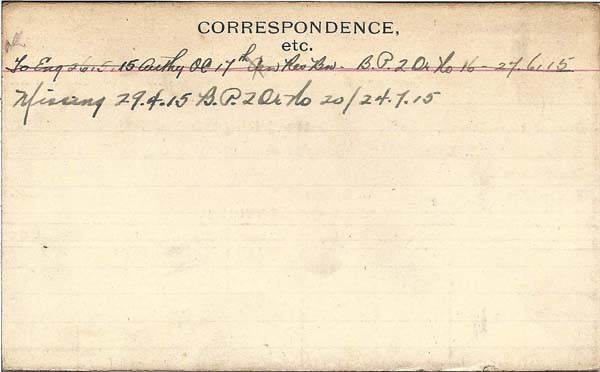 CORRESPONDENCE,
etc.
To Eng 26.5.15 Authy OC 17th Res Bn - B.P.2 Or No 16 - 27.6.15
Missing 29.4.15 B.P.2 Or No 20/24.7.15